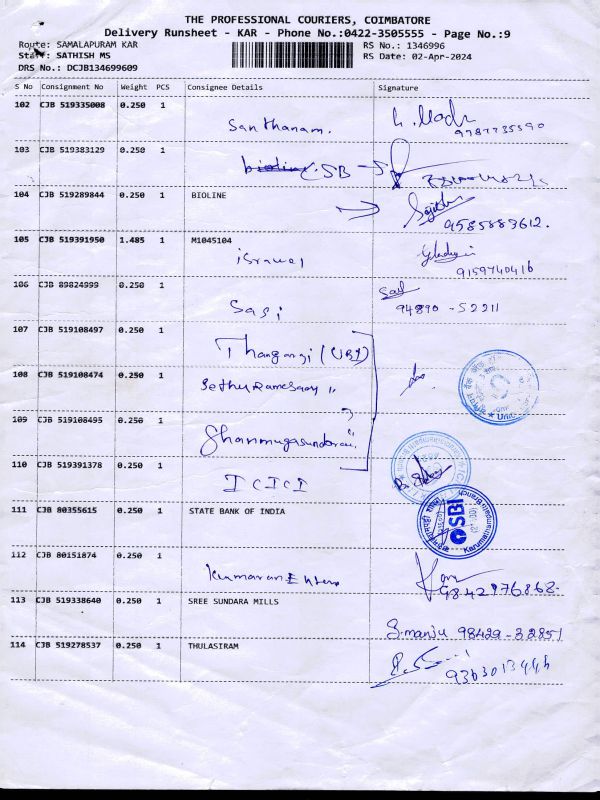 THE PROFESSIONAL COURIERS, COIMBATORE
Delivery Runsheet - KAR - Phone No.:0422-3505555 - Page No.:9
Route: SAMALAPURAM KAR
RS No.: 1346996
Staff: SATHISH MS
RS Date: 02-Apr-2024
DRS No.: DCJB134699609
S No Consignment No Weight PCS Consignee Details Signature
102 CJB 519335008 0.250 1
Santhanam.
103 CJB 519383129 0.250 1
CSB
104 CJB 519289844 0.250 1 BIOLINE
9585883612.
105 CJB 519391950 1.485 1 M1045104
israwel
9159740416
106 CJB 89824999 0.250 1
Sasi
94890 - 52211
107 CJB 519108497 0.250 1
(UBI)
108 CJB 519108474 0.250 1
109 CJB 519108495 0.250 1
110 CJB 519391378 0.250 1
ICICI
111 CJB 80355615 0.250 1 STATE BANK OF INDIA
SBI
112 CJB 80151874 0.250 1
Kumaran
9842976868.
113 CJB 519338640 0.250 1 SREE SUNDARA MILLS
S.manju 98429-32851
114 CJB 519278537 0.250 1 THULASIRAM